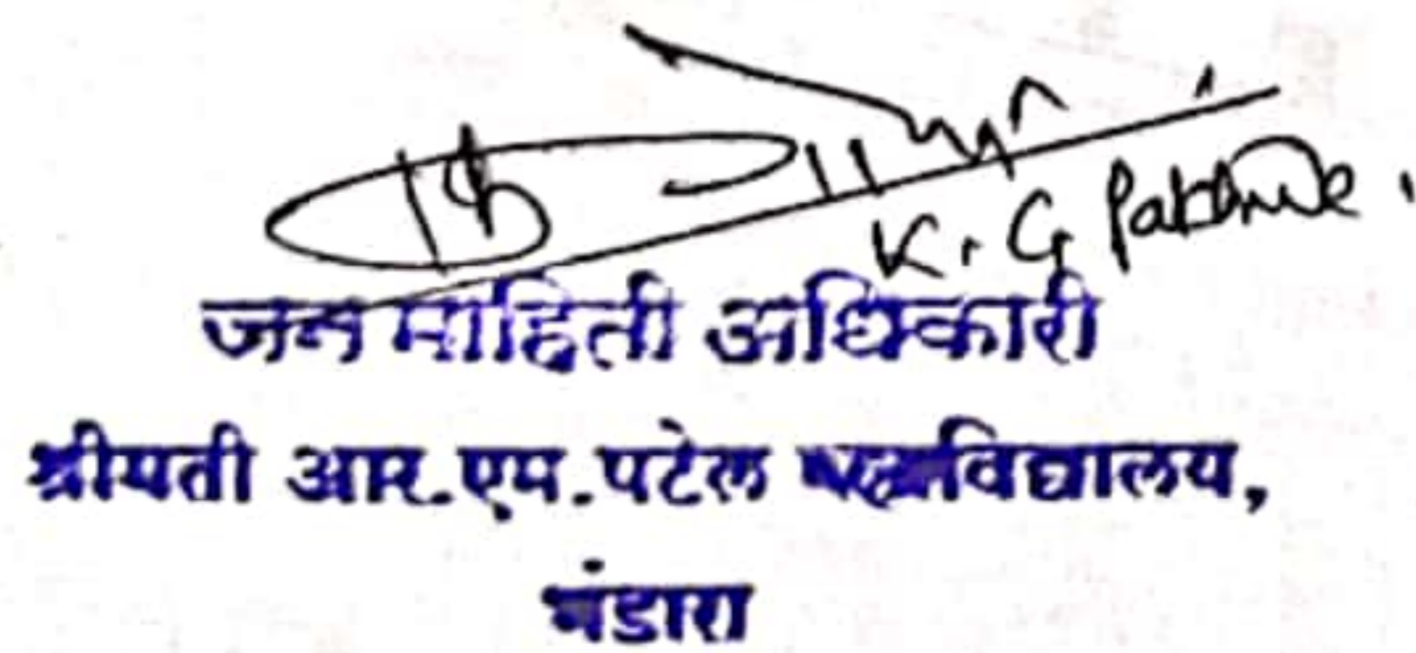 K. G
जन माहिती अधिकारी
श्रीमती आर.एम.पटेल महाविद्यालय,
भंडारा